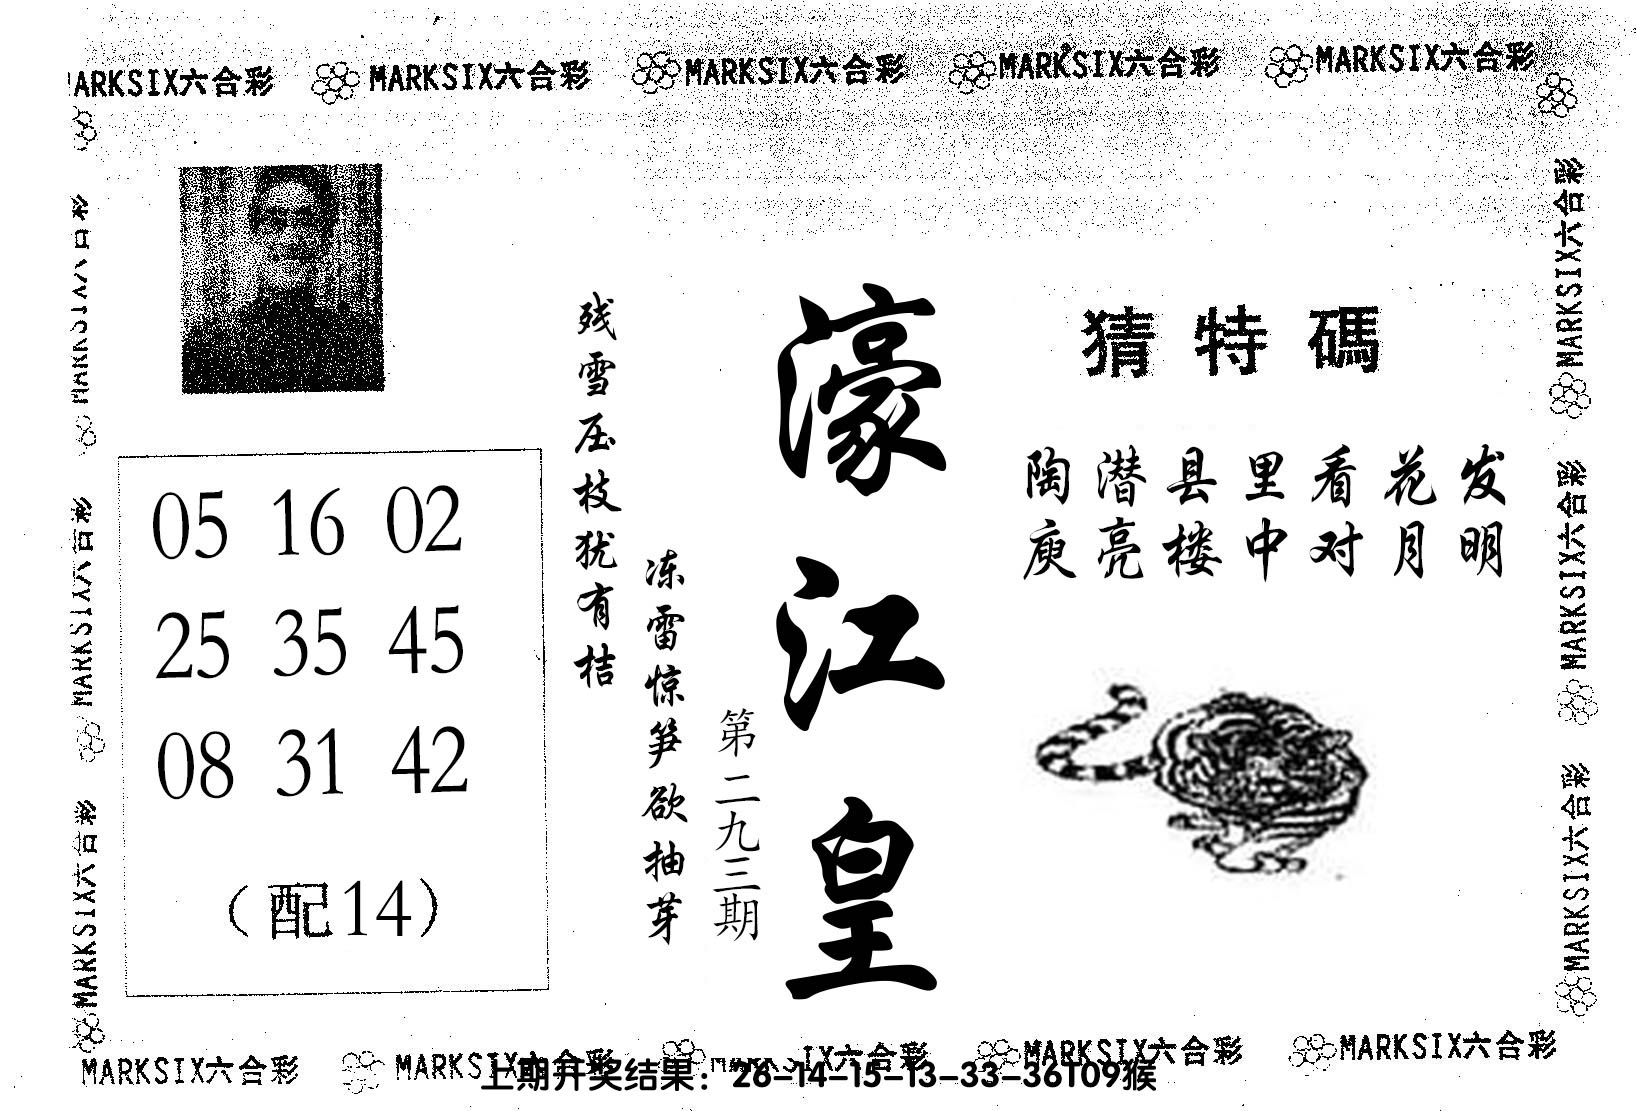 MARKSIX六合彩 MARKSIX六合彩 MARKSIX六合彩 MARKSIX六合彩 MARKSIX六合彩
猜特碼
陶潜县里看花发
庾亮楼中对月明
濠江皇
第二九三期
残雪压枝犹有桔
冻雷惊笋欲抽芽
05 16 02
25 35 45
08 31 42
（配14）
MARKSIX六合彩
MARKSIX六合彩
MARKSIX六合彩
MARKSIX六合彩
MARKSIX六合彩
MARKSIX六合彩
MARKSIX六合彩 MARKSIX六合彩 MARKSIX六合彩 MARKSIX六合彩 MARKSIX六合彩
上期开奖结果：26-14-15-13-33-36T09猴